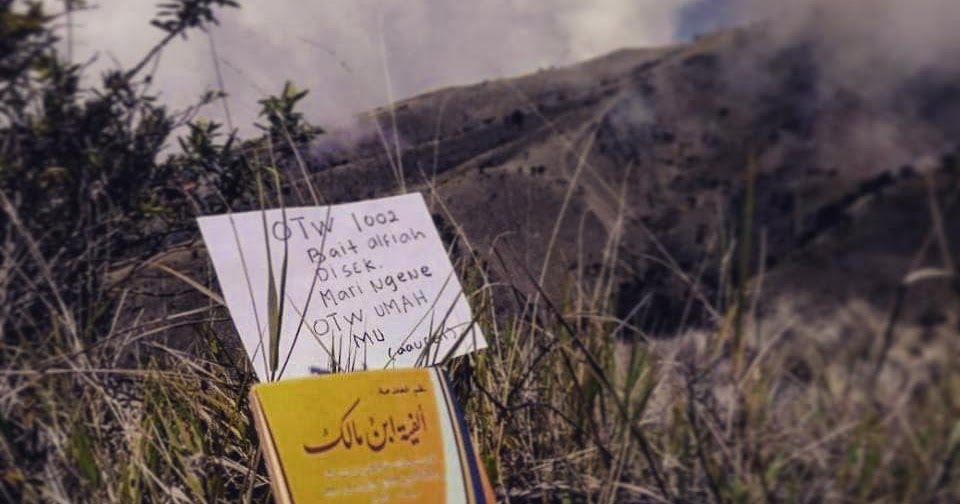 OTW 1002
Bait alfiah
Disek.
Mari Ngene
OTW UMAH
MU
ألفية ابن مالك